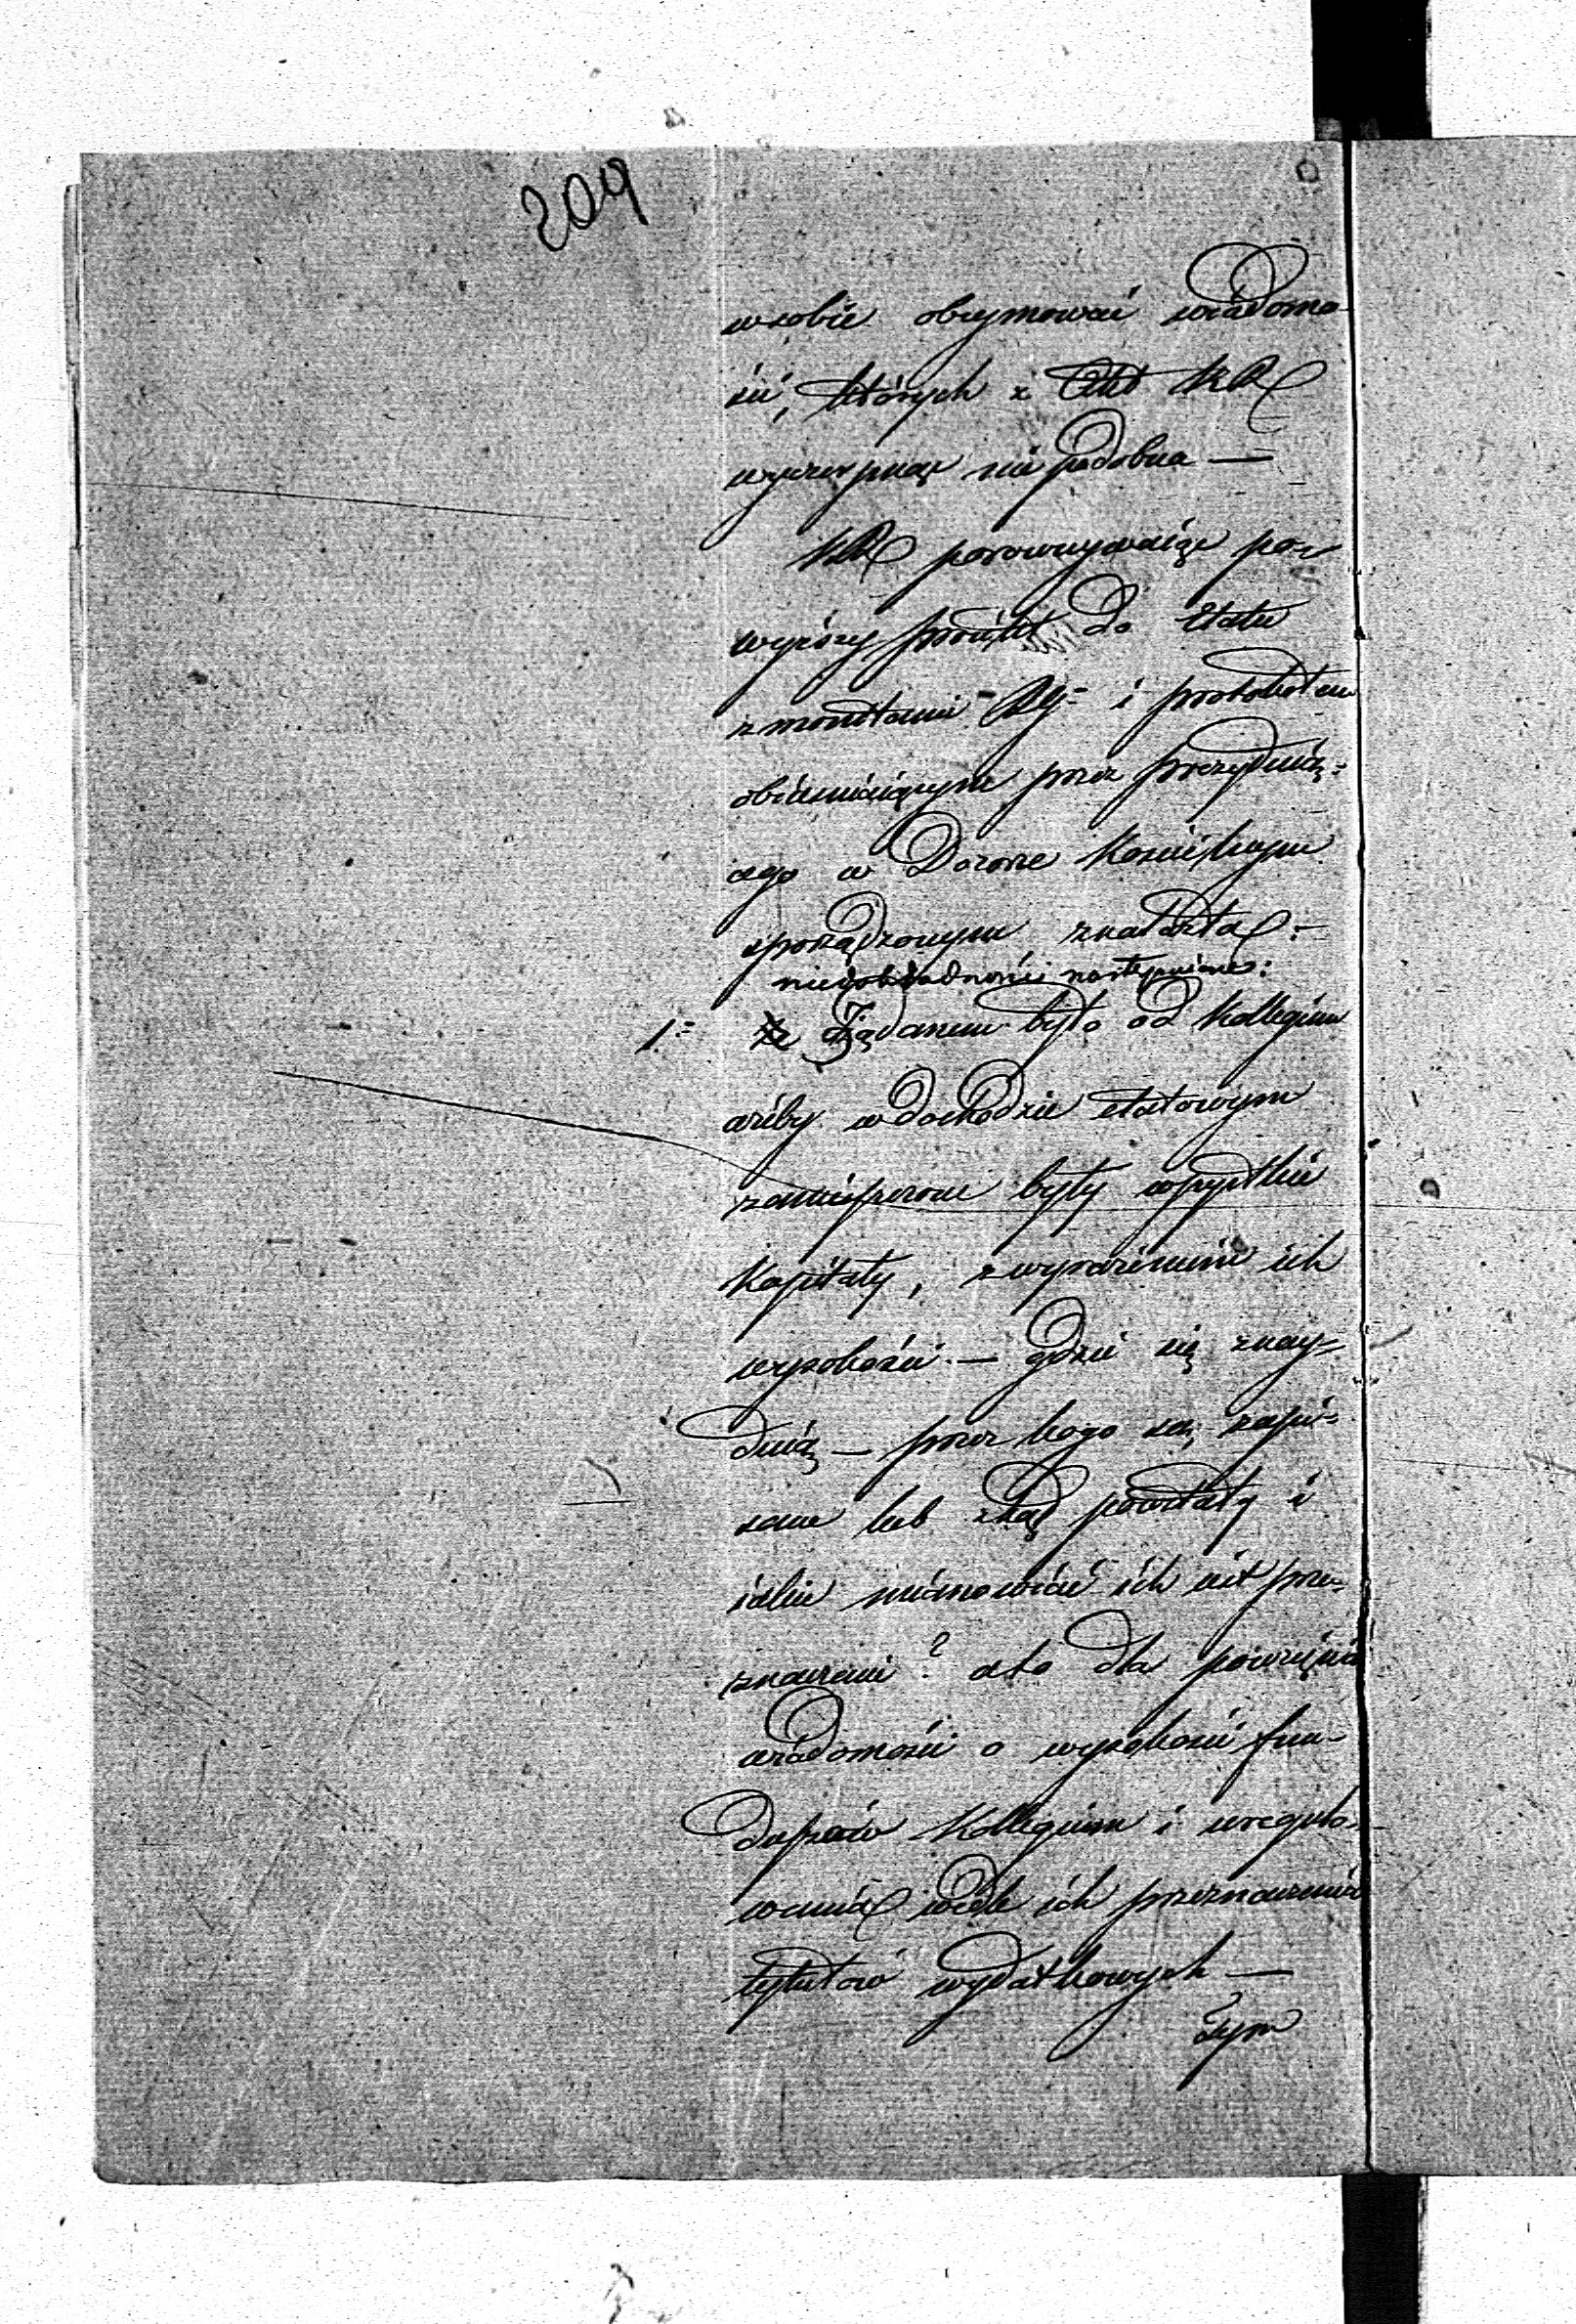 209
w sobie obeymować wiadomo-
ści, których z Akt KR
wyczerpnąć nie podobna —
KR porownywaiąc po-
wyższy proiekt do Etatu
z monitami Dy= i protokołem
obiasniaiącym przez prezyduią=
cego w Dozorze Kościelnym
sporządzonym znalazła:
niedokładności następuiące:
1= Że Żądanem było od Kollegium
ażeby w dochodzie etatowym
zamieszczone były wszystkie
Kapitały, z wyrażeniem ich
wysokości — gdzie się znay=
duią — przez kogo są zapi=
sane lub zkąd powstały i
iakie mianowicie ich iest prze=
znaczenie? a to dla powzięcia
wiadomości o wysokości fun-
duszów Kollegium i uregulo-
wania wedle ich przeznaczenia
tytułów wydatkowych —
Tym